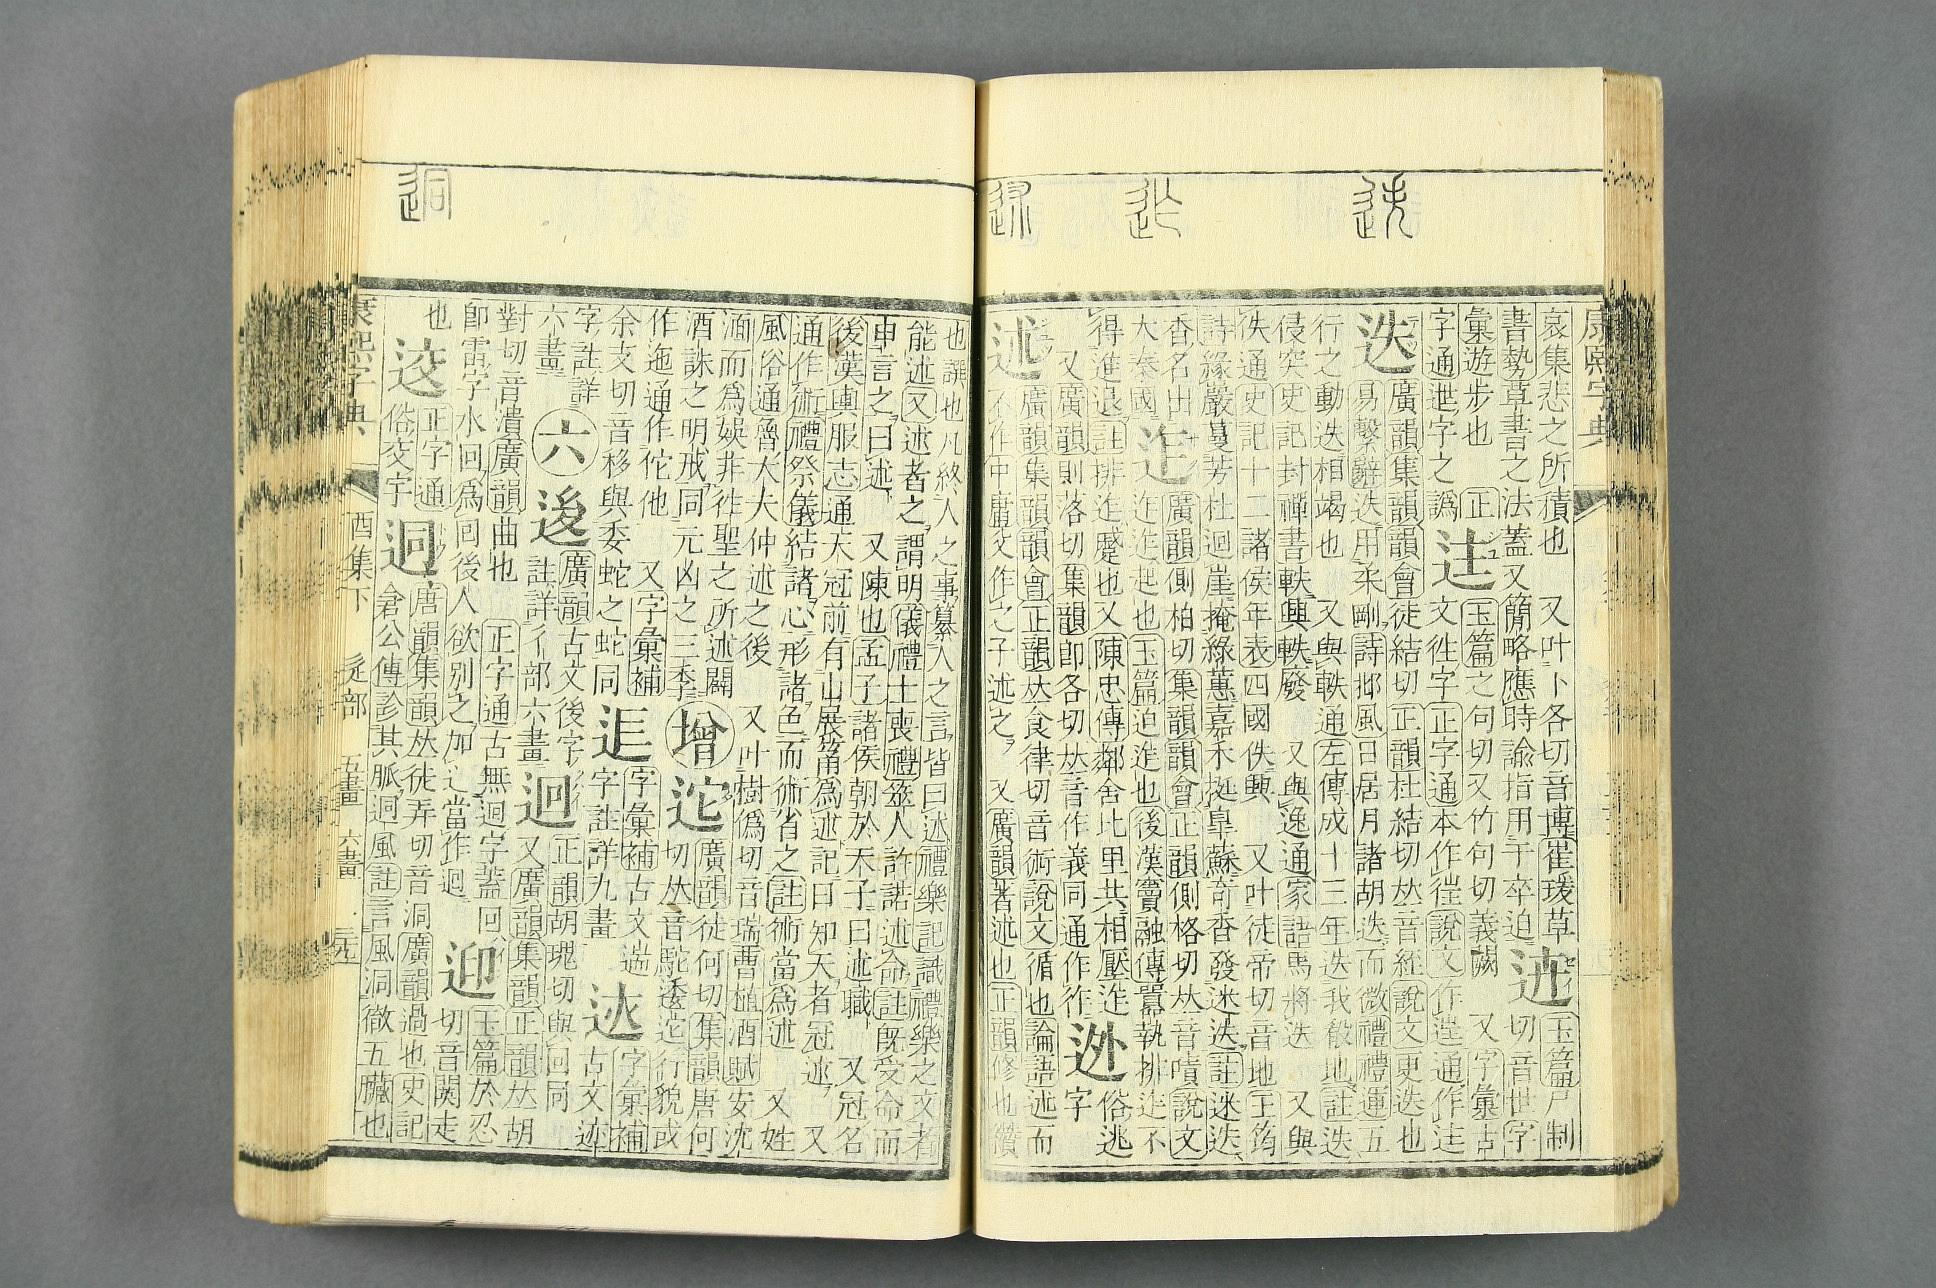 康熙字典
哀集悲之所積也 又叶卜各切音博崔瑗草 迣 玉篇尸制
書勢草書之法蓋又簡略應時諭指用于卒迫 切音世字
彙遊步也 正 迬 玉篇之句切又竹句切義闕 又字彙古
字通迣字之譌 文徃字正字通本作徃說文作 通作迬
迭 廣韻集韻韻會徒結切正韻杜結切𠀤音絰說文更迭也
易繫辭迭用柔剛詩邶風日居月諸胡迭而微禮禮運五
行之動迭相竭也 又與軼通左傳成十三年迭我殽地註迭
侵突史記封禪書軼興軼廢 又與逸通家語馬將迭 又與
佚通史記十二諸侯年表四國佚興 又叶徒帝切音地王筠
詩緣巖蔓芳杜迴崖掩綠蕙嘉禾挺皐蘇奇香發迷迭註迷迭
香名出 迮 廣韻側柏切集韻韻會正韻側格切𠀤音嘖說文
大秦國 迮迮起也玉篇迫迮也後漢竇融傳囂執排迮不
得進退註排迮蹙也又陳忠傳鄰舍比里共相壓迮 迯 俗逃
又廣韻則落切集韻卽各切𠀤音作義同通作作 字
述 廣韻集韻韻會正韻𠀤食律切音術說文循也論語述而
不作中庸父作之子述之 又廣韻著述也正韻修也纘
也譔也凡終人之事纂人之言皆曰述禮樂記識禮樂之文者
能述又述者之謂明儀禮士喪禮筮人許諾述命註旣受命而
申言之曰述 又陳也孟子諸侯朝於天子曰述職 又冠名
後漢輿服志通天冠前有山展筩爲述記曰知天者冠述 又
通作術禮祭儀結諸心形諸色而術省之註術當爲述 又姓
風俗通魯大夫仲述之後 又叶樹僞切音瑞曹植酒賦安沈
湎而爲娛非徃聖之所述闢 增 迱 廣韻徒何切集韻唐何
酒誅之明戒同元凶之三季 切𠀤音駝逶迱行貌或
作迤通作佗他 又字彙補 字彙補古文 迏 字彙補
余支切音移與委蛇之蛇同 字註詳九畫 古文述
字註詳 六 後 廣韻古文後字 迴 正韻胡瑰切與回同
六畫 註詳彳部六畫 又廣韻集韻正韻𠀤胡
對切音潰廣韻曲也 正字通古無迴字蓋回 迎 玉篇於忍
卽雷字水回爲回後人欲別之加辶當作迴 切音隁走
也 正字通 迵 唐韻集韻𠀤徒弄切音洞廣韻過也史記
俗交字 倉公傳診其脈迵風註言風洞徹五臟也
康熙字典 酉集下 辵部 五畫 六畫